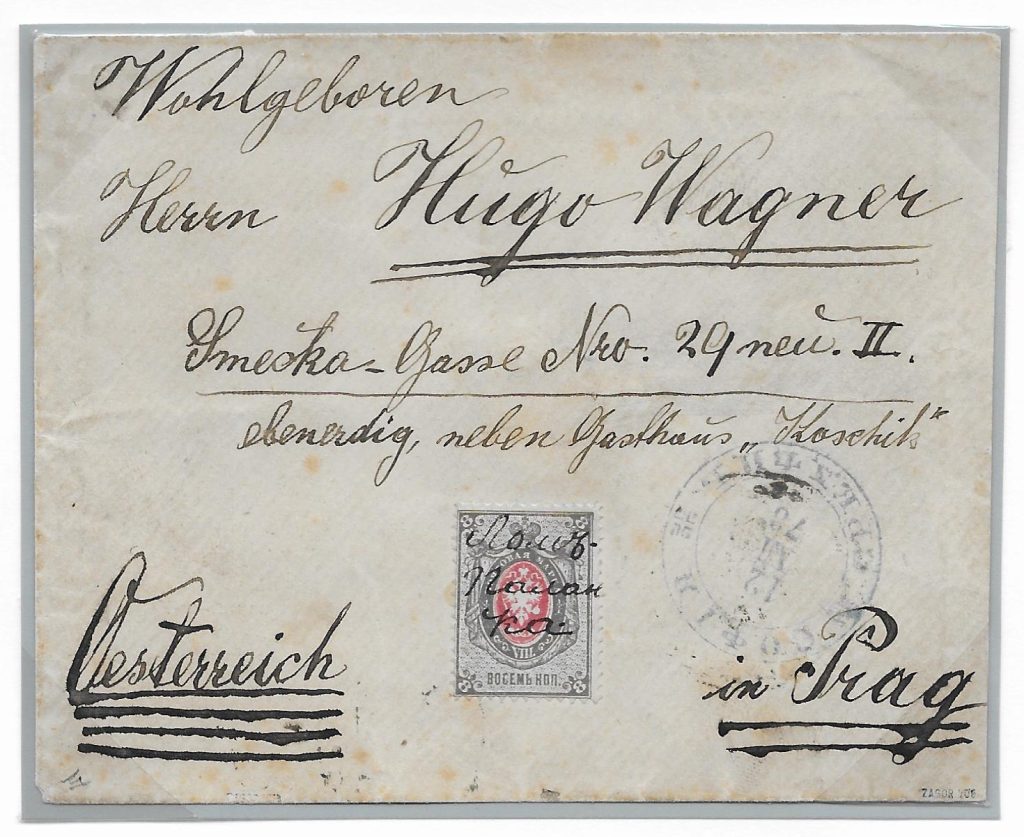 Wohlgeboren
Herrn Hugo Wagner
Smecka-Gasse Nro. 29 neu. II.
ebenerdig, neben Gasthaus „Koschik“
8 8
Ломъ-
Палан
ка
VIII
ВОСЕМЬ КОП.
8 8
Oesterreich
in Prag